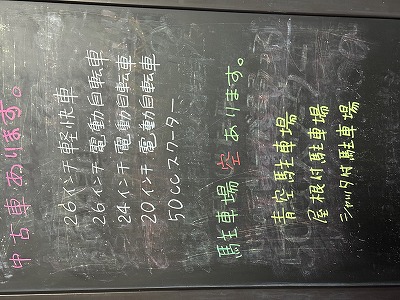 中古車あります。
26インチ 軽快車
26インチ 電動自転車
24インチ 電動自転車
20インチ 電動自転車
50ccスクーター
駐車場 空 あります。
青空駐車場
屋根付駐車場
シャッター付駐車場